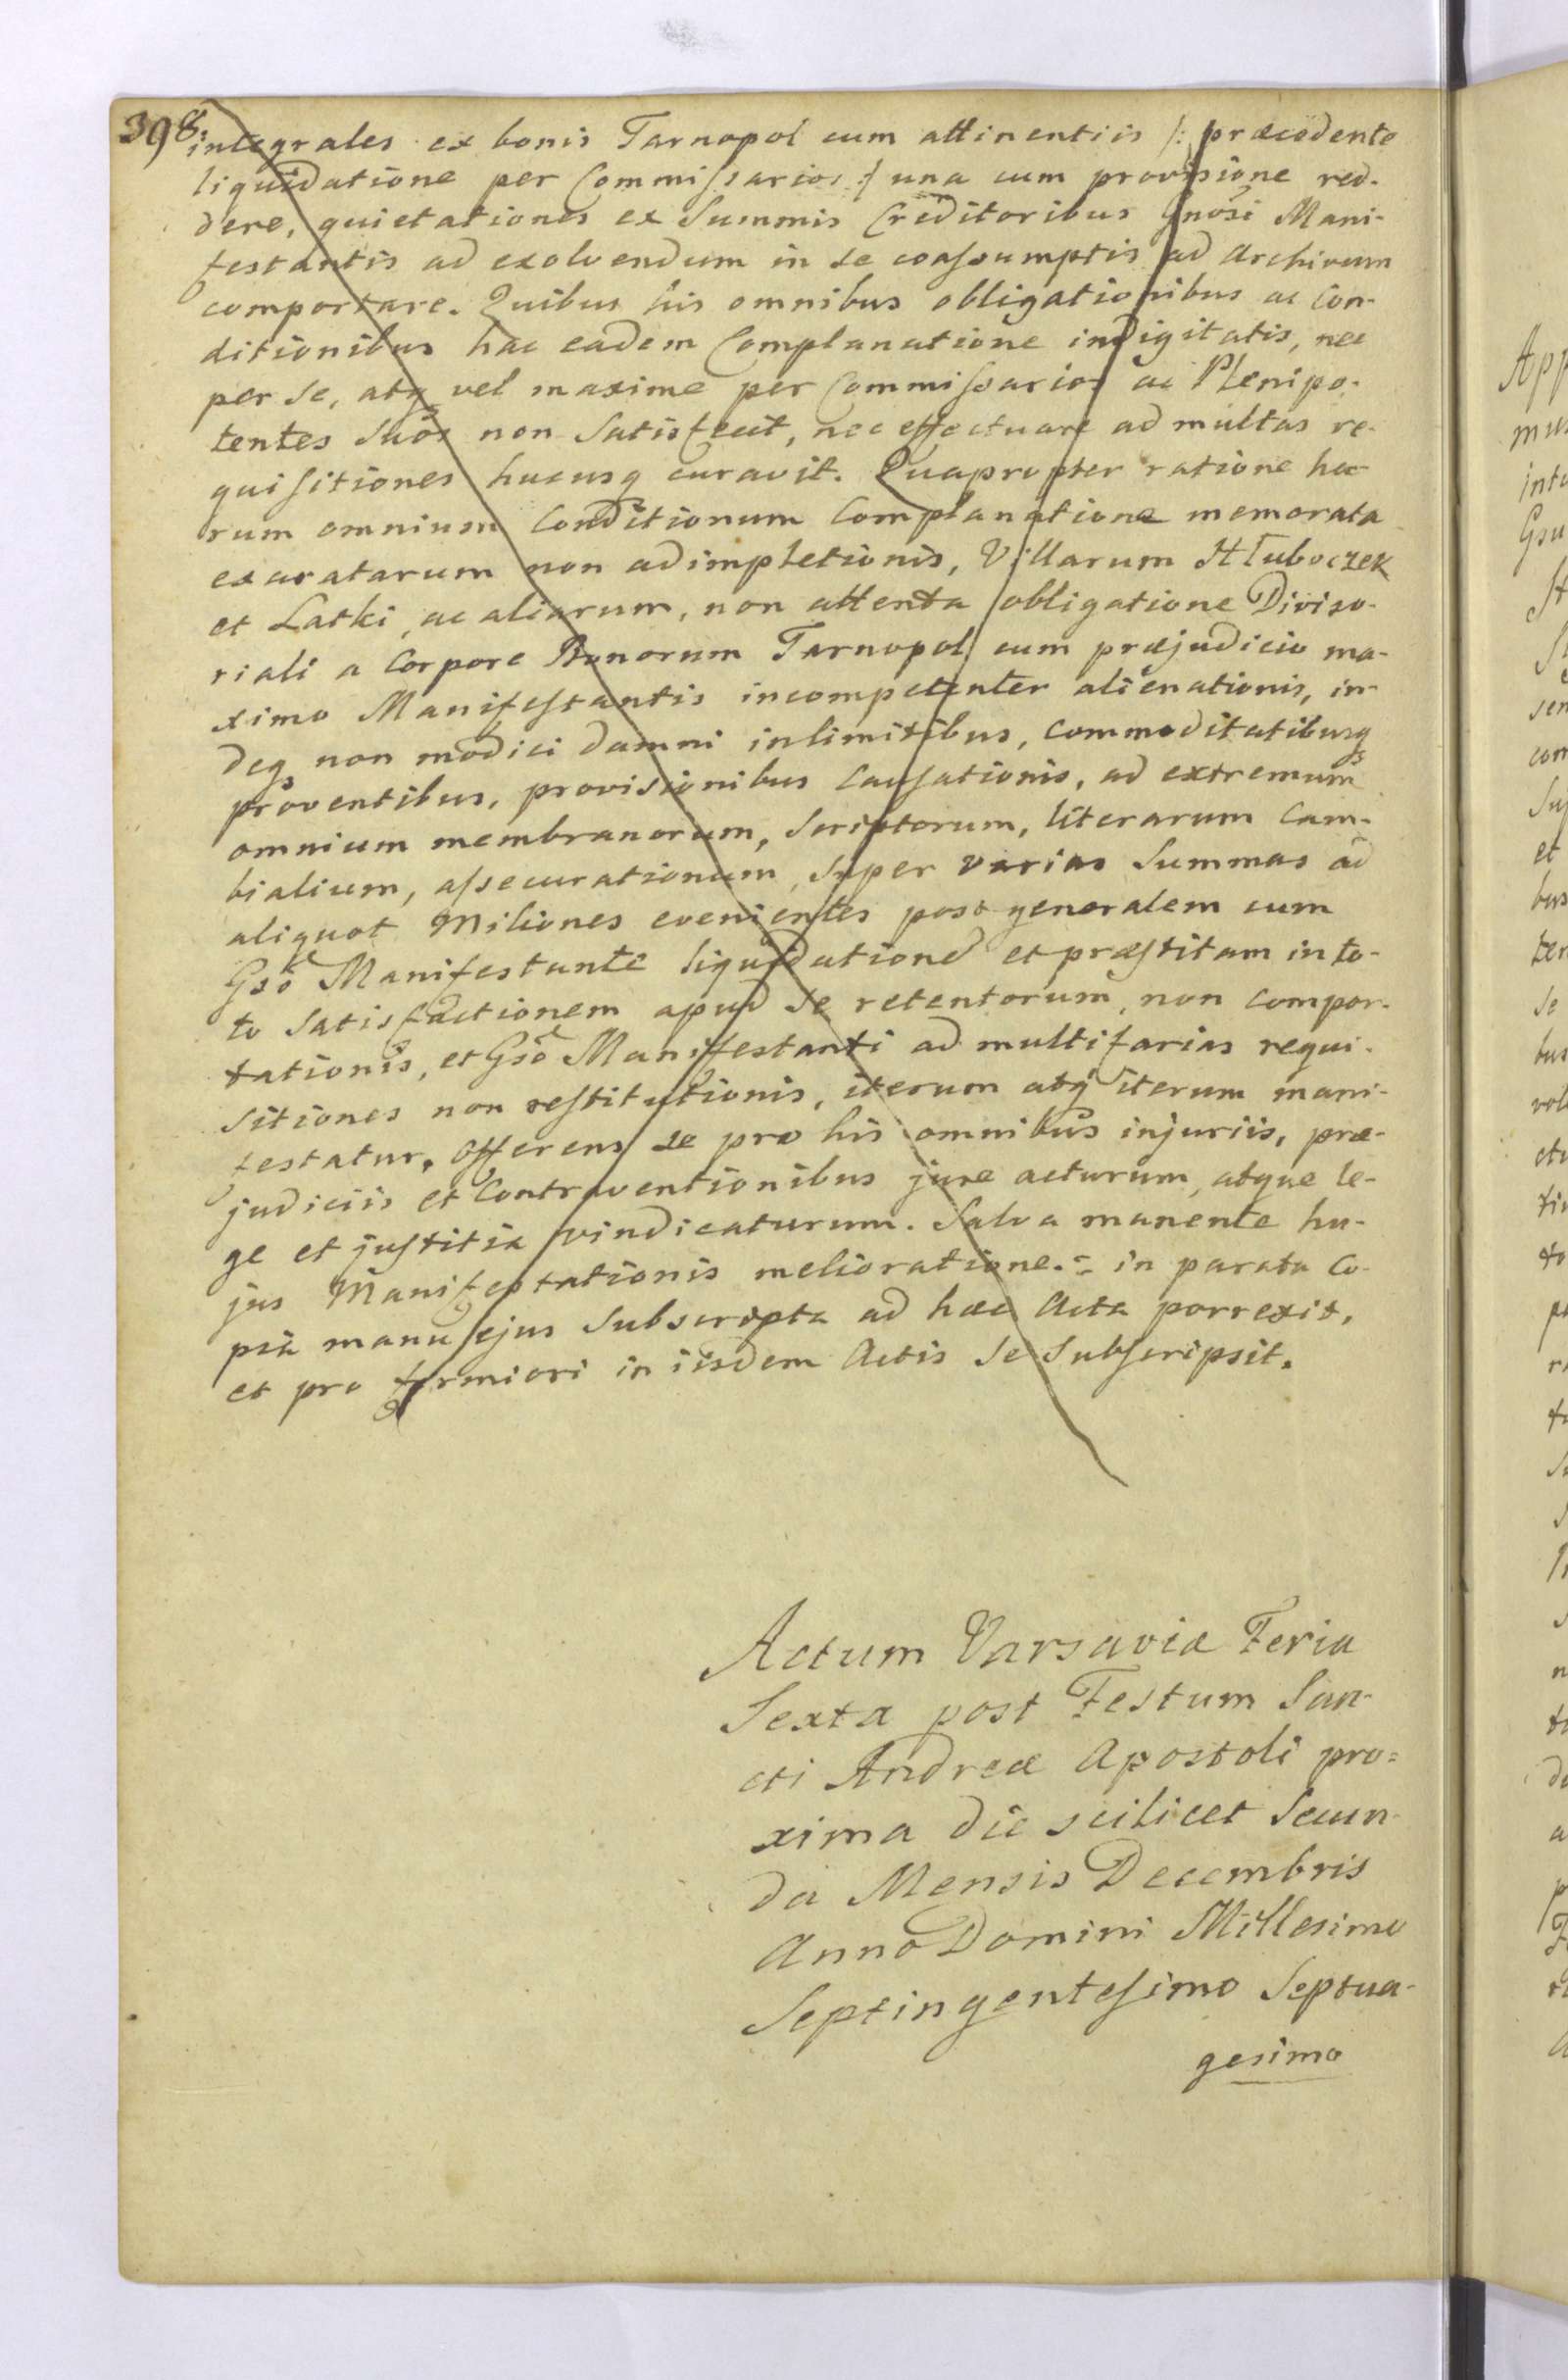 398.
integrales ex bonis Tarnopol cum attinentiis /: præcedente
liquidatione per Commissarios :/ una cum provisione red-
dere, quietationes ex Summis Creditoribus Gnosi Mani-
festantis ad exolvendum in se conssumptis ad Archivum
comportare. Quibus his omnibus obligationibus ac Con-
ditionibus hac eadem Complanatione indigitatis, nec
per se, atq vel maxime per Commissarios ac Plenipo-
tentes Suos non Satisfecit, nec effectuare ad multas re-
quisitiones hucusq curavit. Quapropter ratione ha-
rum omnium Conditionum Complanatione memorata
exaratarum non adimpletionis, Villarum Hłuboczek
et Latki, ac aliarum, non attenta obligatione Diviso-
riali a Corpore Bonorum Tarnopol cum præjudicio ma-
ximo Manifestantis incompetenter alienationis, in-
deq non modici damni in limitibus, Commoditatibusq
proventibus, provisionibus Causationis, ad extremum
omnium membranorum, Scriptorum, literarum Cam-
bialium, assecurationum, Super varias Summas ad
aliquot Miliones evenientes post generalem cum
Gso Manifestante liquidatione et præstitam in to-
to Satisfactionem apud Se retentorum, non Compor-
tationis, et Gso Manifestanti ad multifarias requi-
sitiones non restitutionis, iterum atq iterum mani-
festatur, Offerens se pro his omnibus injuriis, præ-
judiciis et Contraventionibus jure acturum, atque le-
ge et justitia vindicaturum. Salva manente hu-
jus Manifestationis melioratione.- in parata Co-
pia manu ejus Subscripta ad hæc Acta porrexit,
et pro firmiori in iisdem Actis Se Subscripsit.
Actum Varsaviæ Feria
Sexta post Festum San-
cti Andreæ Apostoli pro=
xima die scilicet Secun-
da Mensis Decembris
Anno Domini Millesimo
Septingentesimo Septua-
gesimo